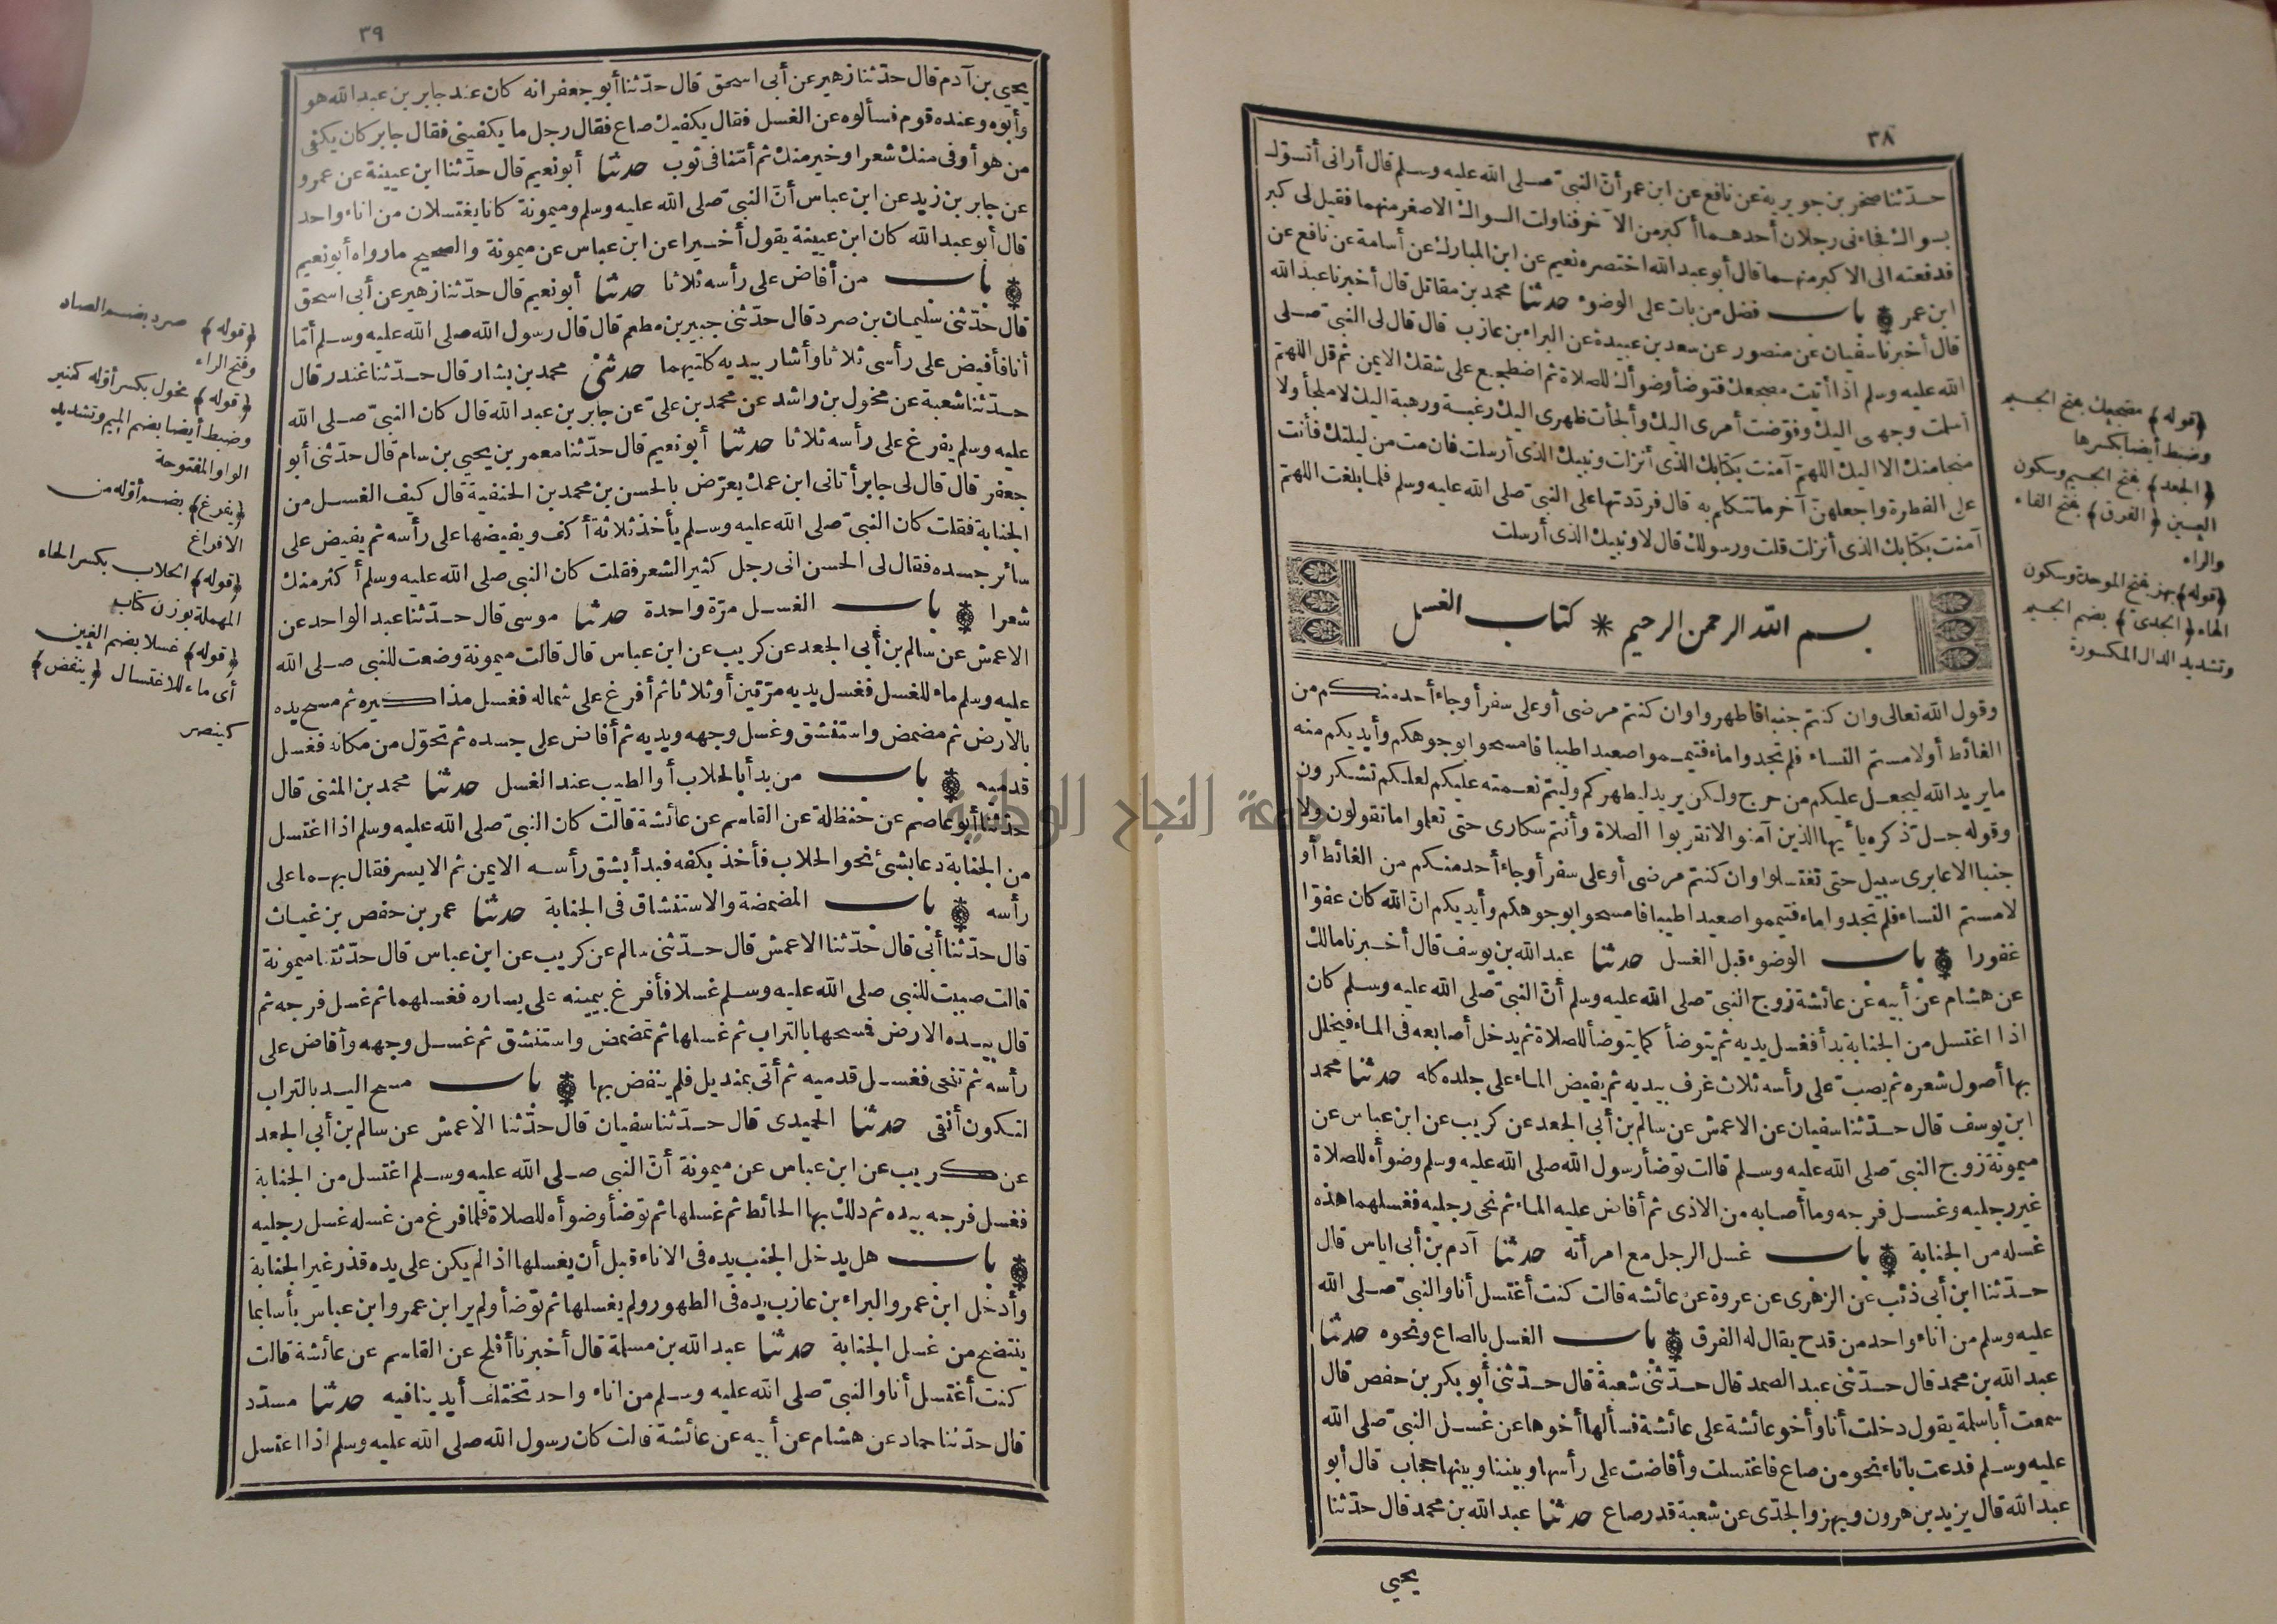 ٣٨
حدّثنا صخر بن جويرية عن نافع عن ابن عمر أنّ النبيّ صلى الله عليه وسلم قال أرانى أتسوّك
بسواك فجاءنى رجلان أحدهما أكبر من الآخر فناولت السواك الاصغر منهما فقيل لى كبر
فدفعته الى الاكبر منهما قال أبو عبد الله اختصره نعيم عن ابن المبارك عن أسامة عن نافع عن
ابن عمر باب فضل من بات على الوضوء حدثنا محمد بن مقاتل قال أخبرنا عبد الله
قال أخبرنا سفيان عن منصور عن سعد بن عبيدة عن البراء بن عازب قال قال لى النبى صلى
الله عليه وسلم اذا أتيت مضجعك فتوضأ وضوأك للصلاة ثم اضطجع على شقك الايمن ثم قل اللهمّ
أسلمت وجهى اليك وفوّضت أمرى اليك وألجأت ظهرى اليك رغبة ورهبة اليك لا ملجأ ولا
منجا منك الا اليك اللهمّ آمنت بكتابك الذى أنزلت ونبيك الذى أرسلت فان مت من ليلتك فأنت
على الفطرة واجعلهنّ آخر ما تتكلم به قال فردّدتها على النبىّ صلى الله عليه وسلم فلما بلغت اللهمّ
آمنت بكتابك الذى أنزلت قلت ورسولك قال لا ونبيك الذى أرسلت
بسم الله الرحمن الرحيم * كتاب الغسل
وقول الله تعالى وان كنتم جنبا فاطهروا وان كنتم مرضى أو على سفر أو جاء أحد منكم من
الغائط أو لامستم النساء فلم تجدوا ماء فتيمموا صعيدا طيبا فامسحوا بوجوهكم وأيديكم منه
ما يريد الله ليجعل عليكم من حرج ولكن يريد ليطهركم وليتم نعمته عليكم لعلكم تشكرون
وقوله جل ذكره يا أيها الذين آمنوا لا تقربوا الصلاة وأنتم سكارى حتى تعلموا ما تقولون ولا
جنبا الا عابرى سبيل حتى تغتسلوا وان كنتم مرضى أو على سفر أو جاء أحد منكم من الغائط أو
لامستم النساء فلم تجدوا ماء فتيمموا صعيدا طيبا فامسحوا بوجوهكم وأيديكم انّ الله كان عفوّا
غفورا باب الوضوء قبل الغسل حدثنا عبد الله بن يوسف قال أخبرنا مالك
عن هشام عن أبيه عن عائشة زوج النبىّ صلى الله عليه وسلم أنّ النبىّ صلى الله عليه وسلم كان
اذا اغتسل من الجنابة بدأ فغسل يديه ثم يتوضأ كما يتوضأ للصلاة ثم يدخل أصابعه فى الماء فيخلل
بها أصول شعره ثم يصبّ على رأسه ثلاث غرف بيديه ثم يفيض الماء على جلده كله حدثنا محمد
ابن يوسف قال حدّثنا سفيان عن الاعمش عن سالم بن أبى الجعد عن كريب عن ابن عباس عن
ميمونة زوج النبىّ صلى الله عليه وسلم قالت توضأ رسول الله صلى الله عليه وسلم وضوأه للصلاة
غير رجليه وغسل فرجه وما أصابه من الاذى ثم أفاض عليه الماء ثم نحى رجليه فغسلهما هذه
غسله من الجنابة باب غسل الرجل مع امرأته حدثنا آدم بن أبى اياس قال
حدّثنا ابن أبى ذئب عن الزهرى عن عروة عن عائشه قالت كنت أغتسل أنا والنبىّ صلى الله
عليه وسلم من اناء واحد من قدح يقال له الفرق باب الغسل بالصاع ونحوه حدثنا
عبد الله بن محمد قال حدّثنى عبد الصمد قال حدّثنى شعبة قال حدّثنى أبو بكر بن حفص قال
سمعت أبا سلمة يقول دخلت أنا وأخو عائشة على عائشة فسألها أخوها عن غسل النبىّ صلى الله
عليه وسلم فدعت باناء نحو من صاع فاغتسلت وأفاضت على رأسها وبيننا وبينها حجاب قال أبو
عبد الله قال يزيد بن هرون وبهز والجدّى عن شعبة قدر صاع حدثنا عبد الله بن محمد قال حدّثنا
يحيى
﴿قوله﴾ مضجعك بفتح الجيم
وضبط أيضا بكسرها
﴿الجعد﴾ بفتح الجيم وسكون
العين ﴿الفرق﴾ بفتح الفاء
والراء
﴿قوله﴾ بهز بفتح الموحدة وسكون
الهاء ﴿الجدى﴾ بضم الجيم
وتشديد الدال المكسورة
٣٩
يحيى بن آدم قال حدّثنا زهير عن أبى اسحق قال حدّثنا أبو جعفر انه كان عند جابر بن عبد الله هو
وأبوه وعنده قوم فسألوه عن الغسل فقال يكفيك صاع فقال رجل ما يكفينى فقال جابر كان يكفى
من هو أوفى منك شعرا وخير منك ثم أمّنا فى ثوب حدثنا أبو نعيم قال حدّثنا ابن عيينة عن عمرو
عن جابر بن زيد عن ابن عباس أنّ النبىّ صلى الله عليه وسلم وميمونة كانا يغتسلان من اناء واحد
قال أبو عبد الله كان ابن عيينة يقول أخيرا عن ابن عباس عن ميمونة والصحيح ما رواه أبو نعيم
باب من أفاض على رأسه ثلاثا حدثنا أبو نعيم قال حدّثنا زهير عن أبى اسحق
قال حدّثنى سليمان بن صرد قال حدّثنى جبير بن مطعم قال قال رسول الله صلى الله عليه وسلم أمّا
أنا فأفيض على رأسى ثلاثا وأشار بيديه كلتيهما حدثنى محمد بن بشار قال حدّثنا غندر قال
حدّثنا شعبة عن مخول بن راشد عن محمد بن علىّ عن جابر بن عبد الله قال كان النبىّ صلى الله
عليه وسلم يفرغ على رأسه ثلاثا حدثنا أبو نعيم قال حدّثنا معمر بن يحيى بن سام قال حدّثنى أبو
جعفر قال قال لى جابر أتانى ابن عمك يعرّض بالحسن بن محمد بن الحنفية قال كيف الغسل من
الجنابة فقلت كان النبىّ صلى الله عليه وسلم يأخذ ثلاثة أكف ويفيضها على رأسه ثم يفيض على
سائر جسده فقال لى الحسن انى رجل كثير الشعر فقلت كان النبى صلى الله عليه وسلم أكثر منك
شعرا باب الغسل مرّة واحدة حدثنا موسى قال حدّثنا عبد الواحد عن
الاعمش عن سالم بن أبى الجعد عن كريب عن ابن عباس قال قالت ميمونة وضعت للنبى صلى الله
عليه وسلم ماء للغسل فغسل يديه مرّتين أو ثلاثا ثم أفرغ على شماله فغسل مذاكيره ثم مسح يده
بالارض ثم مضمض واستنشق وغسل وجهه ويديه ثم أفاض على جسده ثم تحوّل من مكانه فغسل
قدميه باب من بدأ بالحلاب أو الطيب عند الغسل حدثنا محمد بن المثنى قال
حدّثنا أبو عاصم عن حنظلة عن القاسم عن عائشة قالت كان النبىّ صلى الله عليه وسلم اذا اغتسل
من الجنابة دعا بشئ نحو الحلاب فأخذ بكفه فبدأ بشق رأسه الايمن ثم الايسر فقال بهما على
رأسه باب المضمضة والاستنشاق فى الجنابة حدثنا عمر بن حفص بن غياث
قال حدّثنا أبى قال حدّثنا الاعمش قال حدّثنى سالم عن كريب عن ابن عباس قال حدّثتنا ميمونة
قالت صببت للنبى صلى الله عليه وسلم غسلا فأفرغ بيمينه على يساره فغسلهما ثم غسل فرجه ثم
قال بيده الارض فمسحها بالتراب ثم غسلها ثم تمضمض واستنشق ثم غسل وجهه وأفاض على
رأسه ثم تنحى فغسل قدميه ثم أتى بمنديل فلم ينفض بها باب مسح اليد بالتراب
لتكون أنقى حدثنا الحميدى قال حدّثنا سفيان قال حدّثنا الاعمش عن سالم بن أبى الجعد
عن كريب عن ابن عباس عن ميمونة أنّ النبى صلى الله عليه وسلم اغتسل من الجنابة
فغسل فرجه بيده ثم دلك بها الحائط ثم غسلها ثم توضأ وضوأه للصلاة فلما فرغ من غسله غسل رجليه
باب هل يدخل الجنب يده فى الاناء قبل أن يغسلها اذا لم يكن على يده قذر غير الجنابة
وأدخل ابن عمر والبراء بن عازب يده فى الطهور ولم يغسلها ثم توّضأ ولم ير ابن عمر وابن عباس بأسا بما
ينتضح من غسل الجنابة حدثنا عبد الله بن مسلمة قال أخبرنا أفلح عن القاسم عن عائشة قالت
كنت أغتسل أنا والنبىّ صلى الله عليه وسلم من اناء واحد تختلف أيدينا فيه حدثنا مسدّد
قال حدّثنا حماد عن هشام عن أبيه عن عائشة قالت كان رسول الله صلى الله عليه وسلم اذا اغتسل
﴿قوله﴾ صرد بضم الصاد
وفتح الراء
﴿قوله﴾ مخول بكسر أوّله كمنبر
وضبط أيضا بضم الميم وتشديد
الواو المفتوحة
﴿يفرغ﴾ بضم أوّله من
الافراغ
﴿قوله﴾ الحلاب بكسر الحاء
المهملة بوزن كتاب
﴿قوله﴾ غسلا بضم الغين
أى ماء للاغتسال ﴿ينفض﴾
كينصر
جامعة النجاح الوطنية